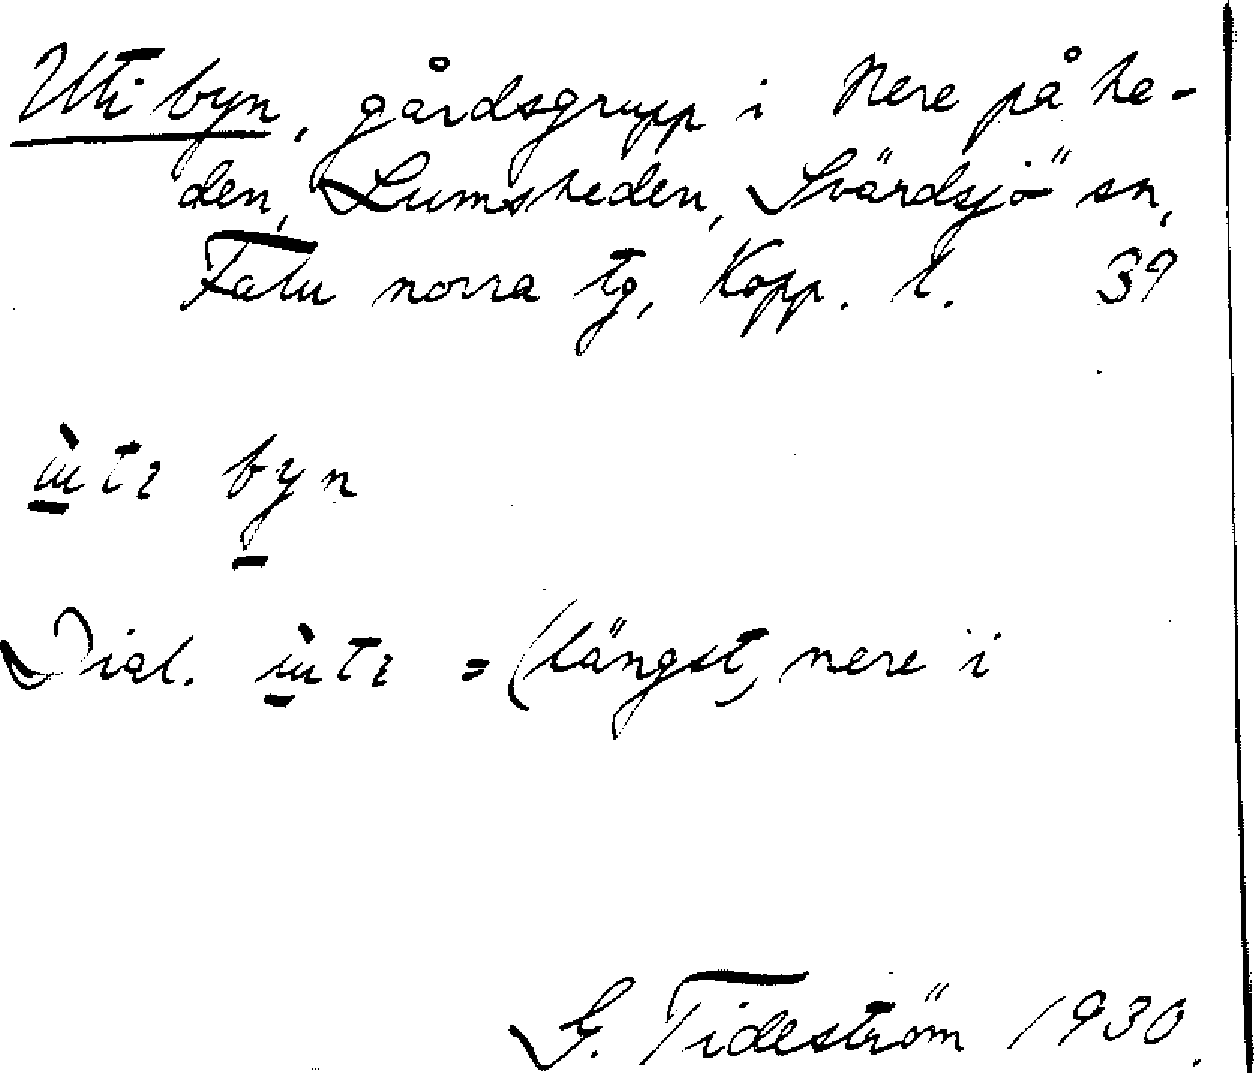 Uti byn, gårdsgrupp i Nere på he-
den, Lumsheden, Svärdsjö sn,
Falu norra tg, Kopp. l. 39
ɯ̀tɩ byn
Dial. ɯ̀tɩ = (längst) nere i
G. Tideström 1930.